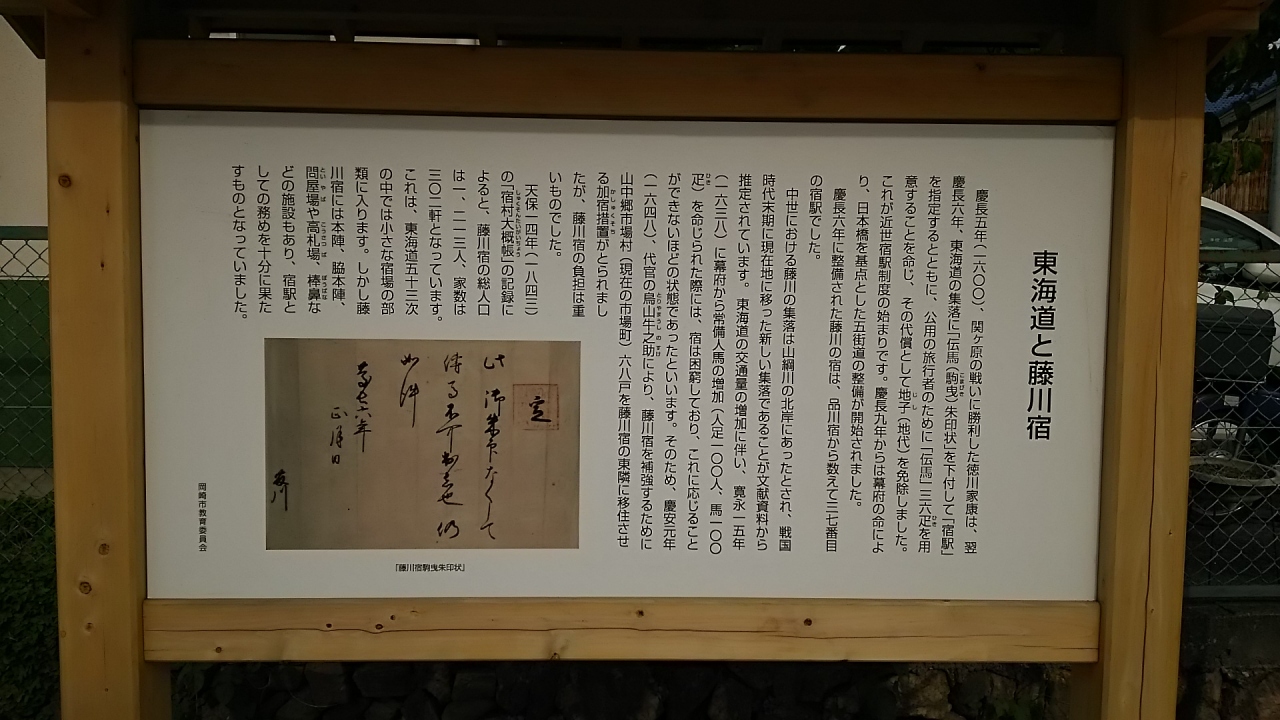 東海道と藤川宿
慶長五年(一六〇〇)、関ヶ原の戦いに勝利した徳川家康は、翌
慶長六年、東海道の集落に「伝馬(駒曳)朱印状」を下付して「宿駅」
を指定するとともに、公用の旅行者のために「伝馬」三六疋を用
意することを命じ、その代償として地子(地代)を免除しました。
これが近世宿駅制度の始まりです。慶長九年からは幕府の命によ
り、日本橋を基点とした五街道の整備が開始されました。
慶長六年に整備された藤川の宿は、品川宿から数えて三七番目
の宿駅でした。
中世における藤川の集落は山綱川の北岸にあったとされ、戦国
時代末期に現在地に移った新しい集落であることが文献資料から
推定されています。東海道の交通量の増加に伴い、寛永一五年
(一六三八)に幕府から常備人馬の増加(人足一〇〇人、馬一〇〇
疋)を命じられた際には、宿は困窮しており、これに応じること
ができないほどの状態であったといいます。そのため、慶安元年
(一六四八)、代官の鳥山牛之助により、藤川宿を補強するために
山中郷市場村(現在の市場町)六八戸を藤川宿の東隣に移住させ
る加宿措置がとられまし
たが、藤川宿の負担は重
いものでした。
天保一四年(一八四三)
の「宿村大概帳」の記録に
よると、藤川宿の総人口
は一、二一三人、家数は
三〇二軒となっています。
これは、東海道五十三次
の中では小さな宿場の部
類に入ります。しかし藤
川宿には本陣、脇本陣、
問屋場や高札場、棒鼻な
どの施設もあり、宿駅と
しての務めを十分に果た
すものとなっていました。
定
此御朱印なくして
伝馬不可出者也仍
如件
慶長六年
正月日
藤川
「藤川宿駒曳朱印状」
岡崎市教育委員会